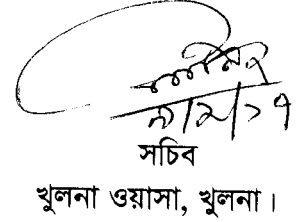 সচিব
খুলনা ওয়াসা, খুলনা।